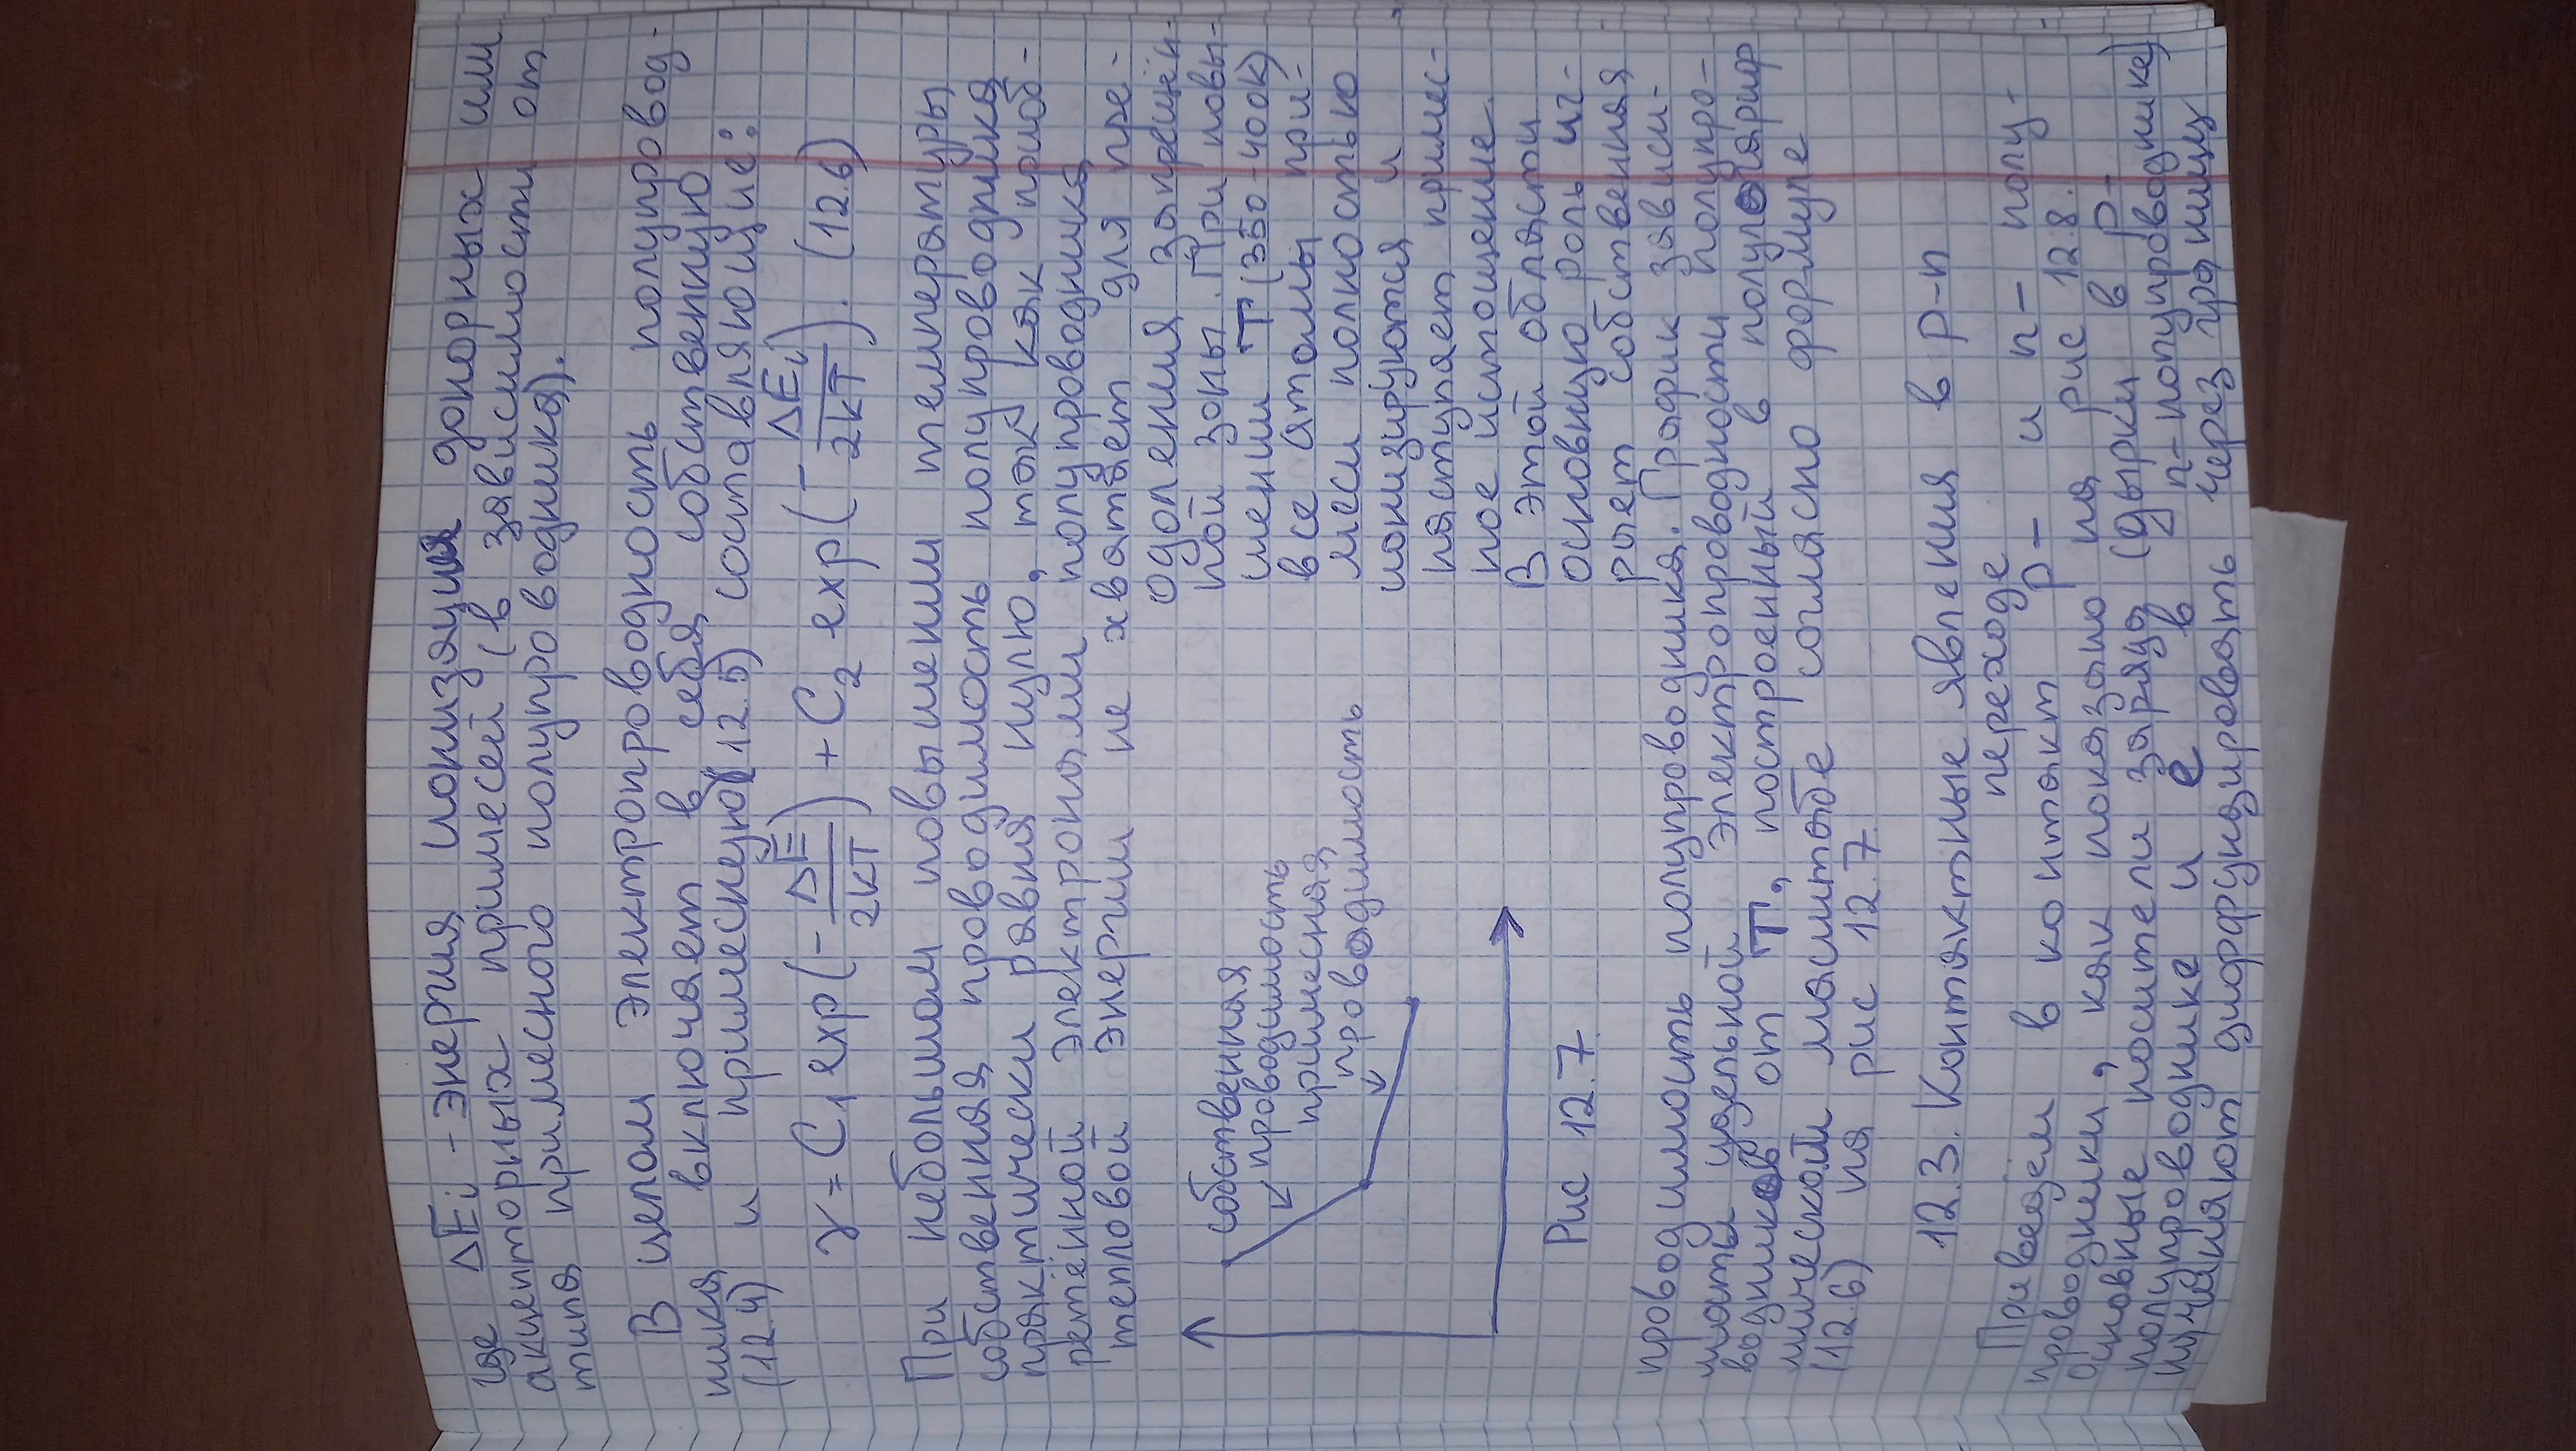 где ΔEi - энергия ионизация донорных или
акцепторных примесей (в зависимости от
типа примесного полупроводника).
В целом электропроводность полупровод-
ника включает в себя собственную
(12.4) и примесную (12.5) составляющие:
γ = C₁ exp(-ΔE/2kT) + C₂ exp(-ΔEi/2kT). (12.6)
При небольшом повышении температуры
собственная проводимость полупроводника
практически равна нулю, так как приоб-
ретённой электронами полупроводника
тепловой энергии не хватает для пре-
одоления запрещён-
ной зоны. При повы-
шении T (350-400К)
все атомы при-
меси полностью
ионизируются и
наступает примес-
ное истощение.
В этой области
основную роль иг-
рает собственная
собственная
проводимость
примесная
проводимость
Рис 12.7.
проводимость полупроводника. График зависи-
мости удельной электропроводности полупро-
водников от T, построенный в полулогариф
мическом масштабе согласно формуле
(12.6) на рис 12.7.
12.3. Контактные явления в p-n
переходе
Приведём в контакт p- и n- полу-
проводники, как показано на рис 12.8.
Основные носители заряда (дырки в p-
полупроводнике и e в n-полупроводнике)
начинают диффундировать через границу